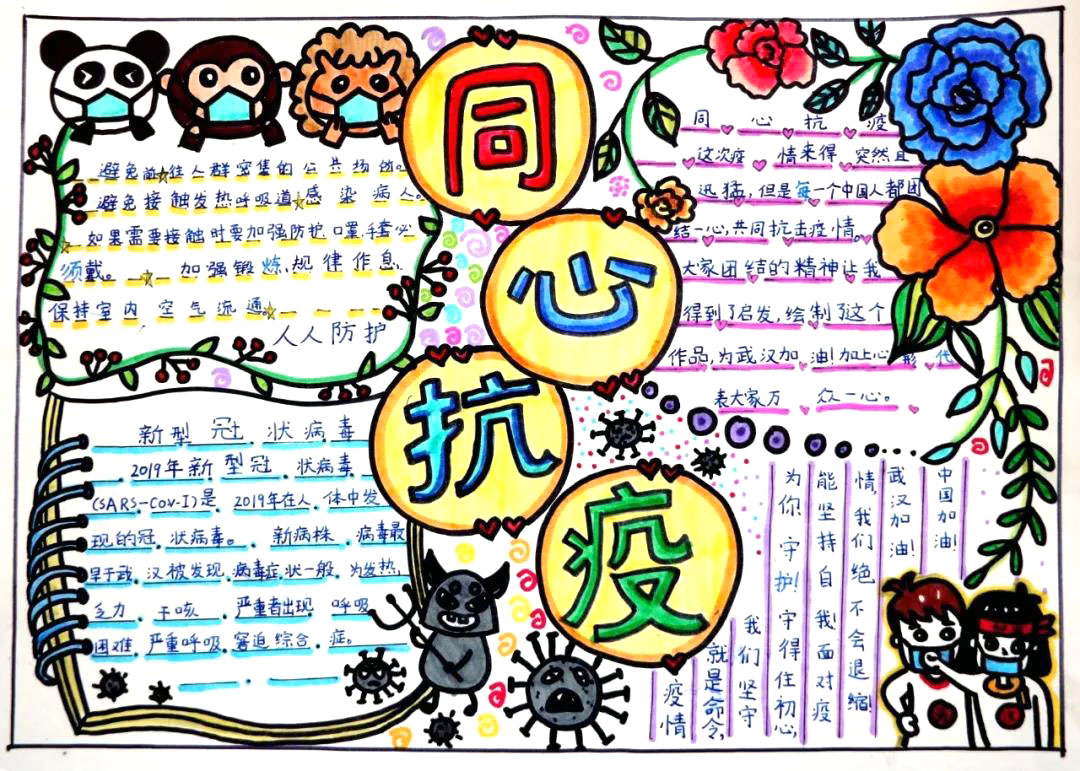 同
心
抗
疫
避免前往人群密集的公共场所。
避免接触发热呼吸道感染病人。
如果需要接触时要加强防护,口罩,手套必
须戴。加强锻炼,规律作息,
保持室内空气流通。
人人防护
新型冠状病毒
2019年新型冠状病毒
(SARS-CoV-I)是2019年在人体中发
现的冠状病毒。新病株病毒最
早于武汉被发现,病毒症状一般为发热,
乏力、干咳严重者出现呼吸
困难、严重呼吸窘迫综合症。
同心抗疫
这次疫情来得突然且
迅猛,但是每一个中国人都团
结一心,共同抗击疫情。
大家团结的精神让我
得到了启发,绘制了这个
作品,为武汉加油!加上心形代
表大家万众一心。
疫情
就是命令,
我们坚守
为你守护!守得住初心,
能坚持自我!面对疫
情,我们绝不会退缩!
武汉加油!
中国加油!